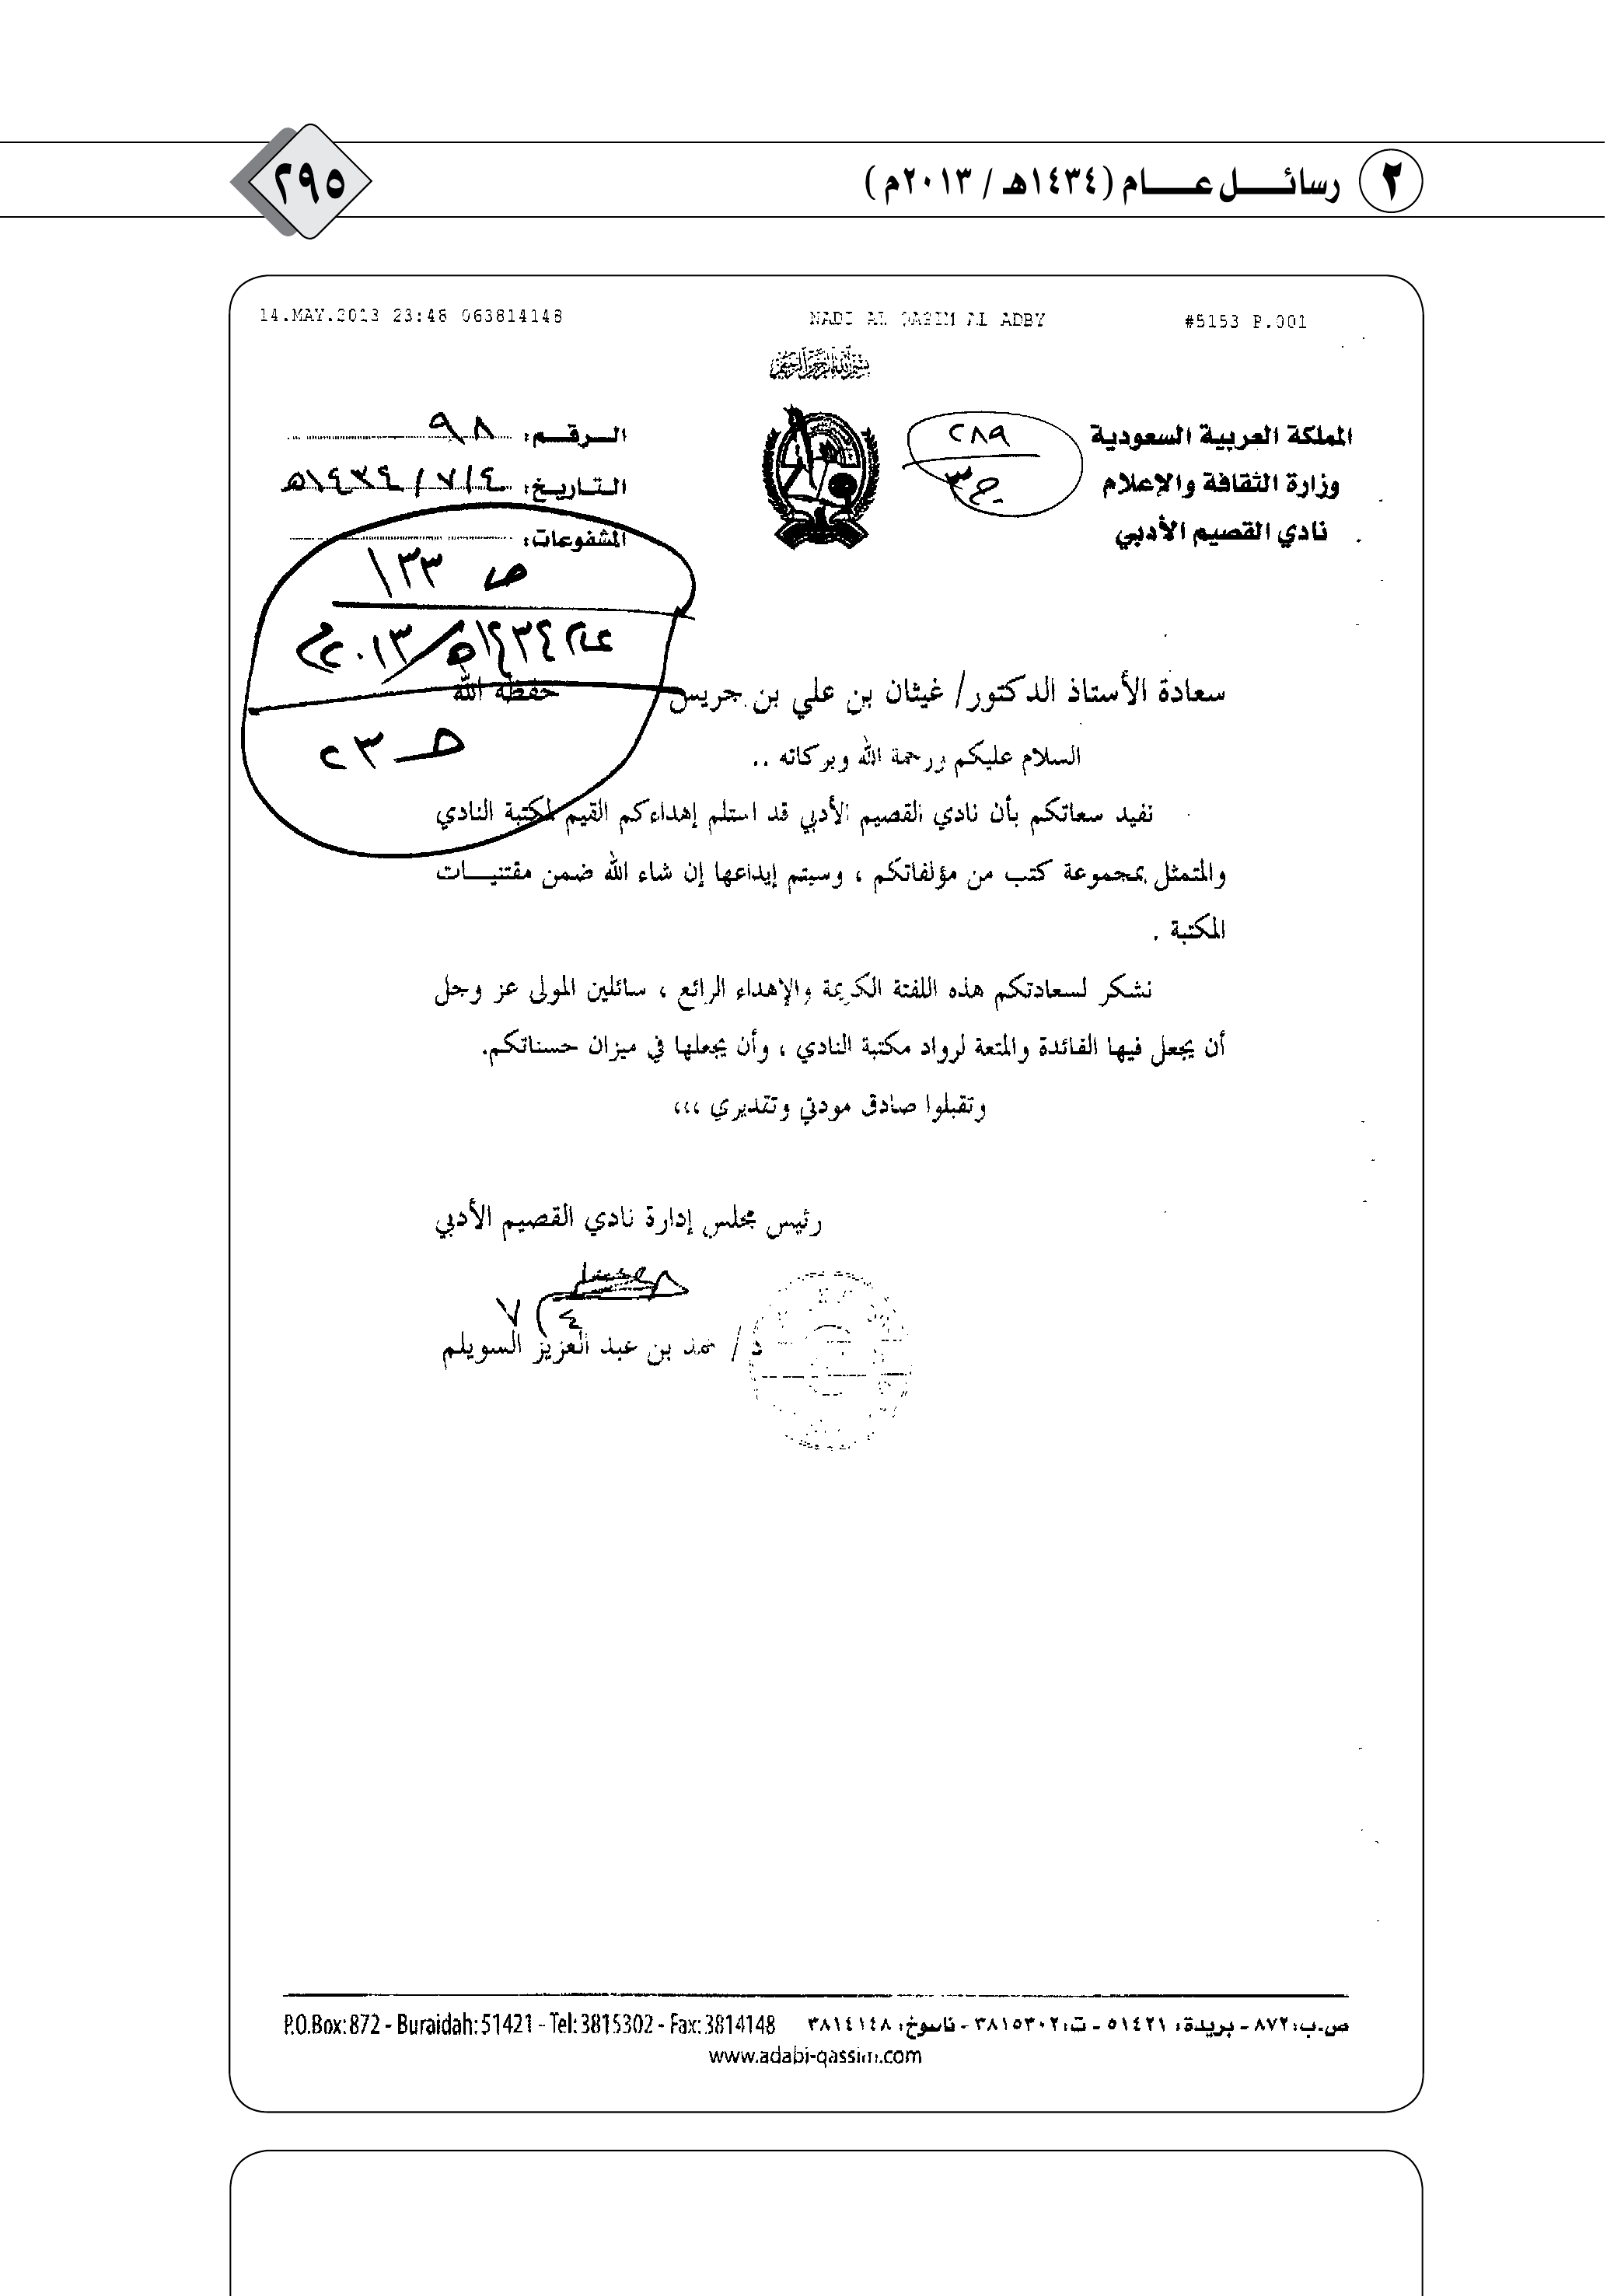 ٢ رسائل عام (١٤٣٤هـ / ٢٠١٣م)
٢٩٥
14.MAY.2013 23:48 063814148 NADI AL QASIM AL ADBY #5153 P.001
بسم الله الرحمن الرحيم
المملكة العربية السعودية
وزارة الثقافة والإعلام
نادي القصيم الأدبي
٢٨٩
ج ٣
الرقم: ٩٨
التاريخ: ١٤٣٤/٧/٤هـ
المشفوعات:
ص ١٣٣
عام ١٤٣٤هـ/٢٠١٣م
حـ ٢٣
سعادة الأستاذ الدكتور/ غيثان بن علي بن جريس حفظه الله
السلام عليكم ورحمة الله وبركاته ..
نفيد سعاتكم بأن نادي القصيم الأدبي قد استلم إهداءكم القيم لمكتبة النادي
والمتمثل بمجموعة كتب من مؤلفاتكم ، وسيتم إيداعها إن شاء الله ضمن مقتنيـــات
المكتبة .
نشكر لسعادتكم هذه اللفتة الكريمة والإهداء الرائع ، سائلين المولى عز وجل
أن يجعل فيها الفائدة والمتعة لرواد مكتبة النادي ، وأن يجعلها في ميزان حسناتكم.
وتقبلوا صادق مودتي وتقديري ،،،
رئيس مجلس إدارة نادي القصيم الأدبي
٧/٤
د / حمد بن عبد العزيز السويلم
ص.ب: ٨٧٢ - بريدة: ٥١٤٢١ - ت: ٣٨١٥٣٠٢ - ناسوخ: ٣٨١٤١٤٨ P.O.Box: 872 - Buraidah: 51421 - Tel: 3815302 - Fax: 3814148
www.adabi-qassim.com